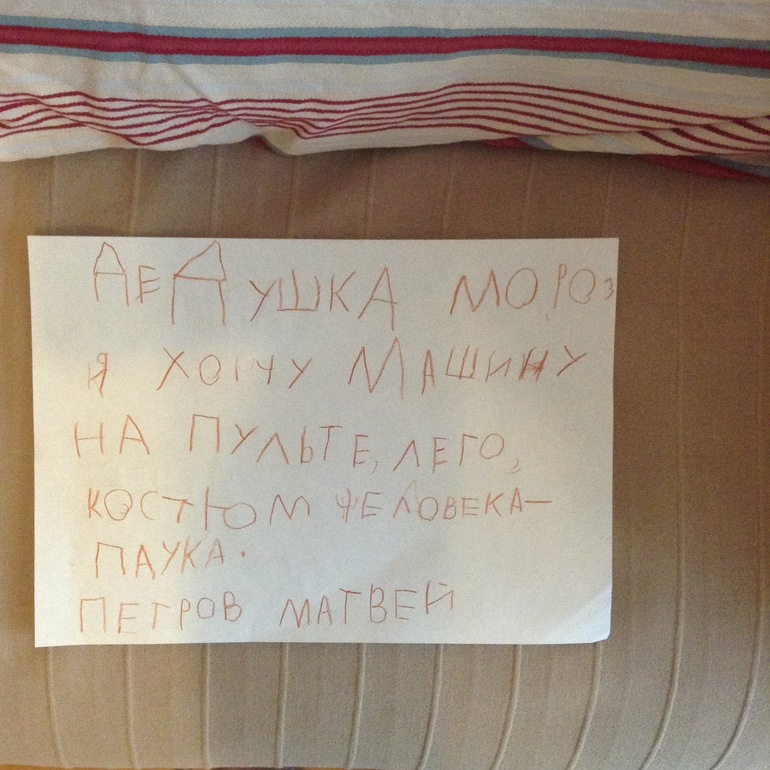 ДЕДУШКА МОРОЗ
Я ХОЧУ МАШИНУ
НА ПУЛЬТЕ, ЛЕГО,
КОСТЮМ ЧЕЛОВЕКА-
ПАУКА.
ПЕТРОВ МАТВЕЙ